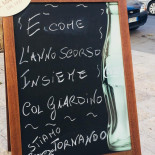 E' COME
L'ANNO SCORSO
INSIEME
COL GIARDINO
STIAMO
TORNANDO